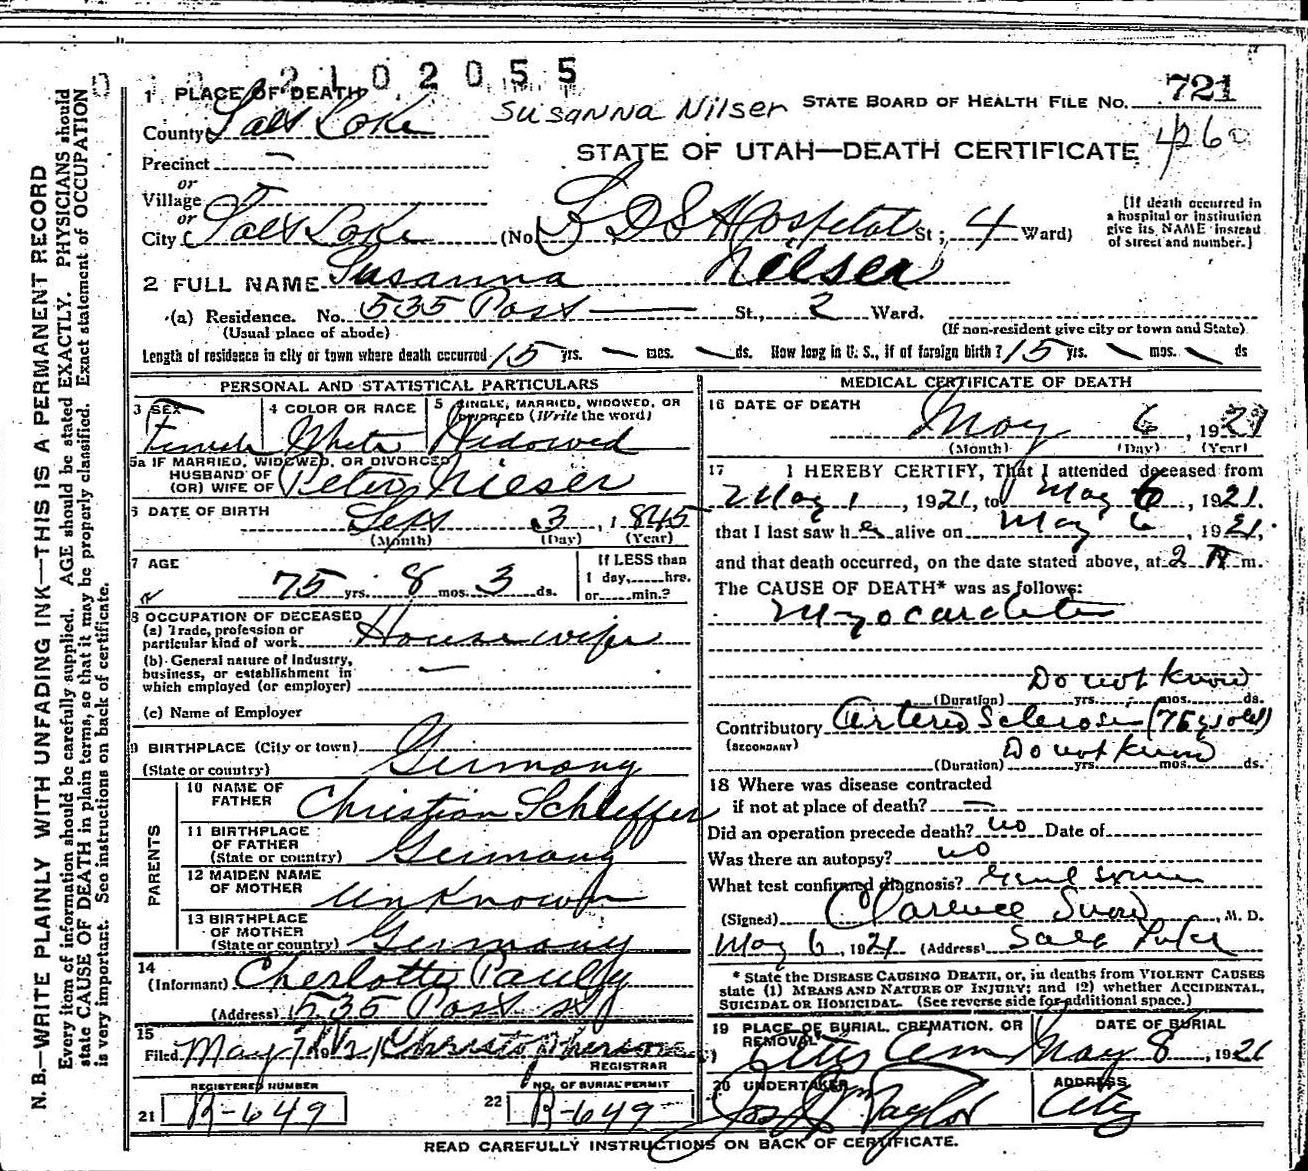 0 1 0 2 1 0 2 0 5 5
1 PLACE OF DEATH Susanna Nilser STATE BOARD OF HEALTH FILE NO. 721
County Salt Lake 4260
Precinct — STATE OF UTAH—DEATH CERTIFICATE
or
Village
or
City Salt Lake (No. L D S Hospital St.; 4 Ward)
[If death occurred in
a hospital or institution
give its NAME instead
of street and number.]
2 FULL NAME Susanna Nilser
(a) Residence. No. 535 Post St., 2 Ward.
(Usual place of abode) (If non-resident give city or town and State)
Length of residence in city or town where death occurred 15 yrs. — mos. — ds. How long in U. S., if of foreign birth? 15 yrs. — mos. — ds
PERSONAL AND STATISTICAL PARTICULARS
3 SEX 4 COLOR OR RACE 5 SINGLE, MARRIED, WIDOWED, OR
DIVORCED (Write the word)
Female White Widowed
5a IF MARRIED, WIDOWED, OR DIVORCED
HUSBAND OF
(OR) WIFE OF Peter Nieser
6 DATE OF BIRTH Sept 3, 1845
(Month) (Day) (Year)
7 AGE If LESS than
75 yrs. 8 mos. 3 ds. 1 day, hrs.
or min.?
8 OCCUPATION OF DECEASED
(a) Trade, profession or
particular kind of work Housewife
(b) General nature of Industry,
business, or establishment in —
which employed (or employer)
(c) Name of Employer
9 BIRTHPLACE (City or town)
(State or country) Germany
PARENTS
10 NAME OF
FATHER Christian Schleffer
11 BIRTHPLACE
OF FATHER
(State or country) Germany
12 MAIDEN NAME
OF MOTHER Unknown
13 BIRTHPLACE
OF MOTHER
(State or country) Germany
14
(Informant) Cherlotte Pauly
(Address) 535 Post St
15
Filed May 7 Christopherson
REGISTRAR
REGISTERED NUMBER NO. OF BURIAL PERMIT
21 R-649 22 R-649
MEDICAL CERTIFICATE OF DEATH
16 DATE OF DEATH
May 6, 1921
(Month) (Day) (Year)
17 I HEREBY CERTIFY, That I attended deceased from
May 1, 1921, to May 6, 1921.
that I last saw her alive on May 6, 1921,
and that death occurred, on the date stated above, at 2 P m.
The CAUSE OF DEATH* was as follows:
Myocarditis
Do not know
(Duration) yrs. mos. ds.
Contributory Arterio Sclerosis (75 yrs old)
(SECONDARY) Do not know
(Duration) yrs. mos. ds.
18 Where was disease contracted
if not at place of death? —
Did an operation precede death? no Date of
Was there an autopsy? no
What test confirmed diagnosis?
(Signed) Clarence Snow, M. D.
May 6, 1921 (Address) Salt Lake
* State the DISEASE CAUSING DEATH, or, in deaths from VIOLENT CAUSES
state (1) MEANS AND NATURE OF INJURY; and (2) whether ACCIDENTAL,
SUICIDAL OR HOMICIDAL. (See reverse side for additional space.)
19 PLACE OF BURIAL, CREMATION, OR DATE OF BURIAL
REMOVAL
City Cem May 8, 1921
20 UNDERTAKER ADDRESS
Taylor City
READ CAREFULLY INSTRUCTIONS ON BACK OF CERTIFICATE.
N. B.—WRITE PLAINLY WITH UNFADING INK—THIS IS A PERMANENT RECORD
Every item of information should be carefully supplied. AGE should be stated EXACTLY. PHYSICIANS should
state CAUSE OF DEATH in plain terms, so that it may be properly classified. Exact statement of OCCUPATION
is very important. See instructions on back of certificate.